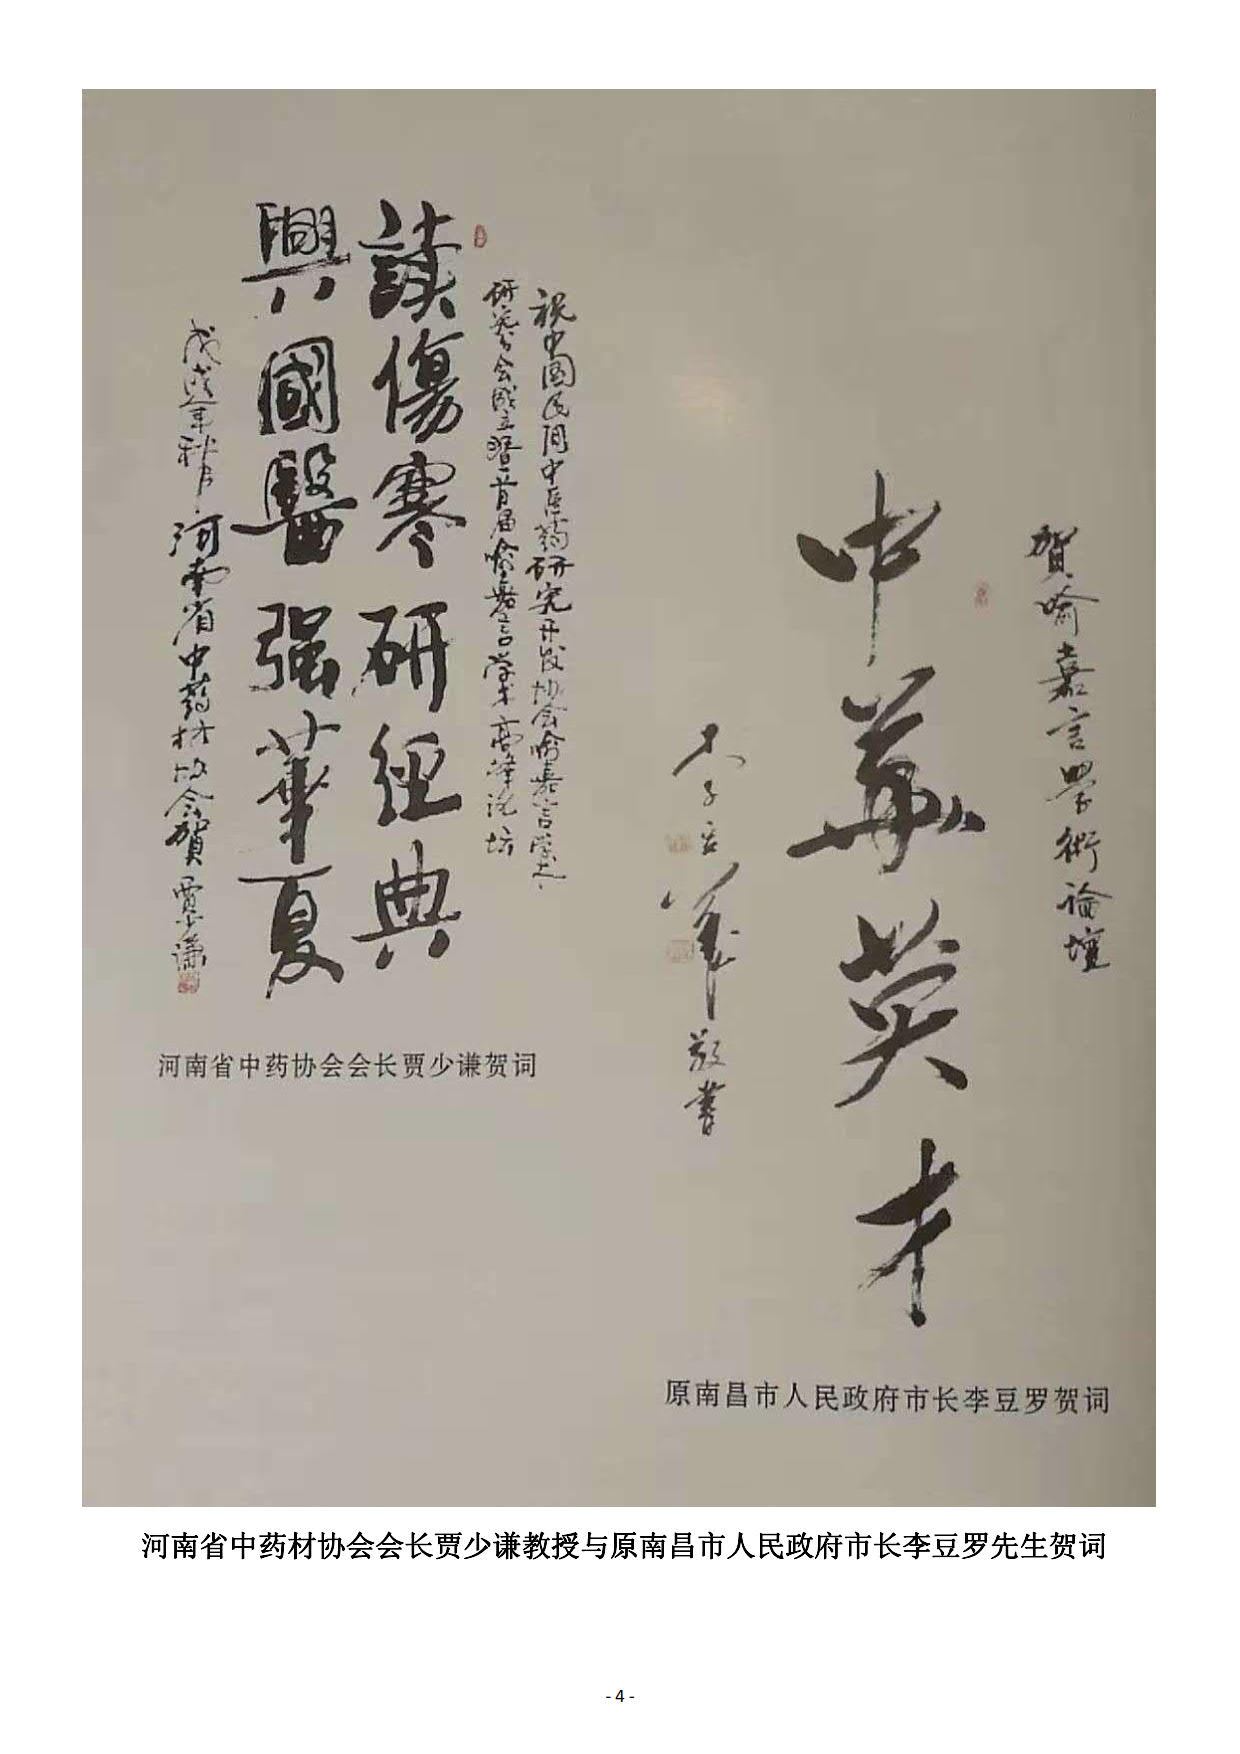 賀喻嘉言學術論壇
中華英才
敬書
原南昌市人民政府市长李豆罗贺词
祝中国民间中医药研究开发协会喻嘉言学术
研究分会成立暨首届喻嘉言学术高峰论坛
讀傷寒研經典
興國醫强華夏
戊戌年秋月河南省中药材协会賀賈少谦
河南省中药协会会长贾少谦贺词
河南省中药材协会会长贾少谦教授与原南昌市人民政府市长李豆罗先生贺词
- 4 -